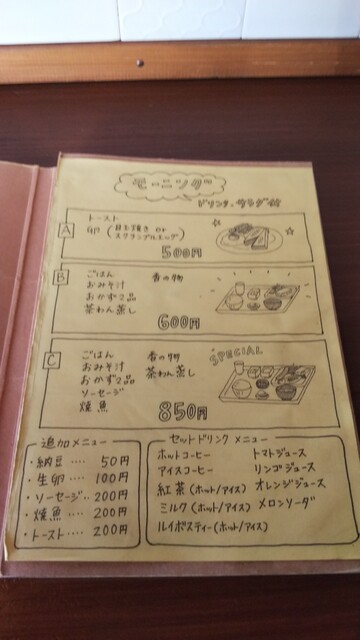 モーニング
ドリンク・サラダ付
A
トースト
卵 (目玉焼き or
スクランブルエッグ)
500円
B
ごはん 香の物
おみそ汁
おかず2品
茶わん蒸し
600円
C
SPECIAL
ごはん 香の物
おみそ汁 茶わん蒸し
おかず2品
ソーセージ
焼魚
850円
追加メニュー
・納豆‥‥ 50円
・生卵‥‥ 100円
・ソーセージ‥ 200円
・焼魚‥‥ 200円
・トースト‥‥ 200円
セットドリンクメニュー
ホットコーヒー トマトジュース
アイスコーヒー リンゴジュース
紅茶(ホット/アイス) オレンジジュース
ミルク(ホット/アイス) メロンソーダ
ルイボスティー(ホット/アイス)